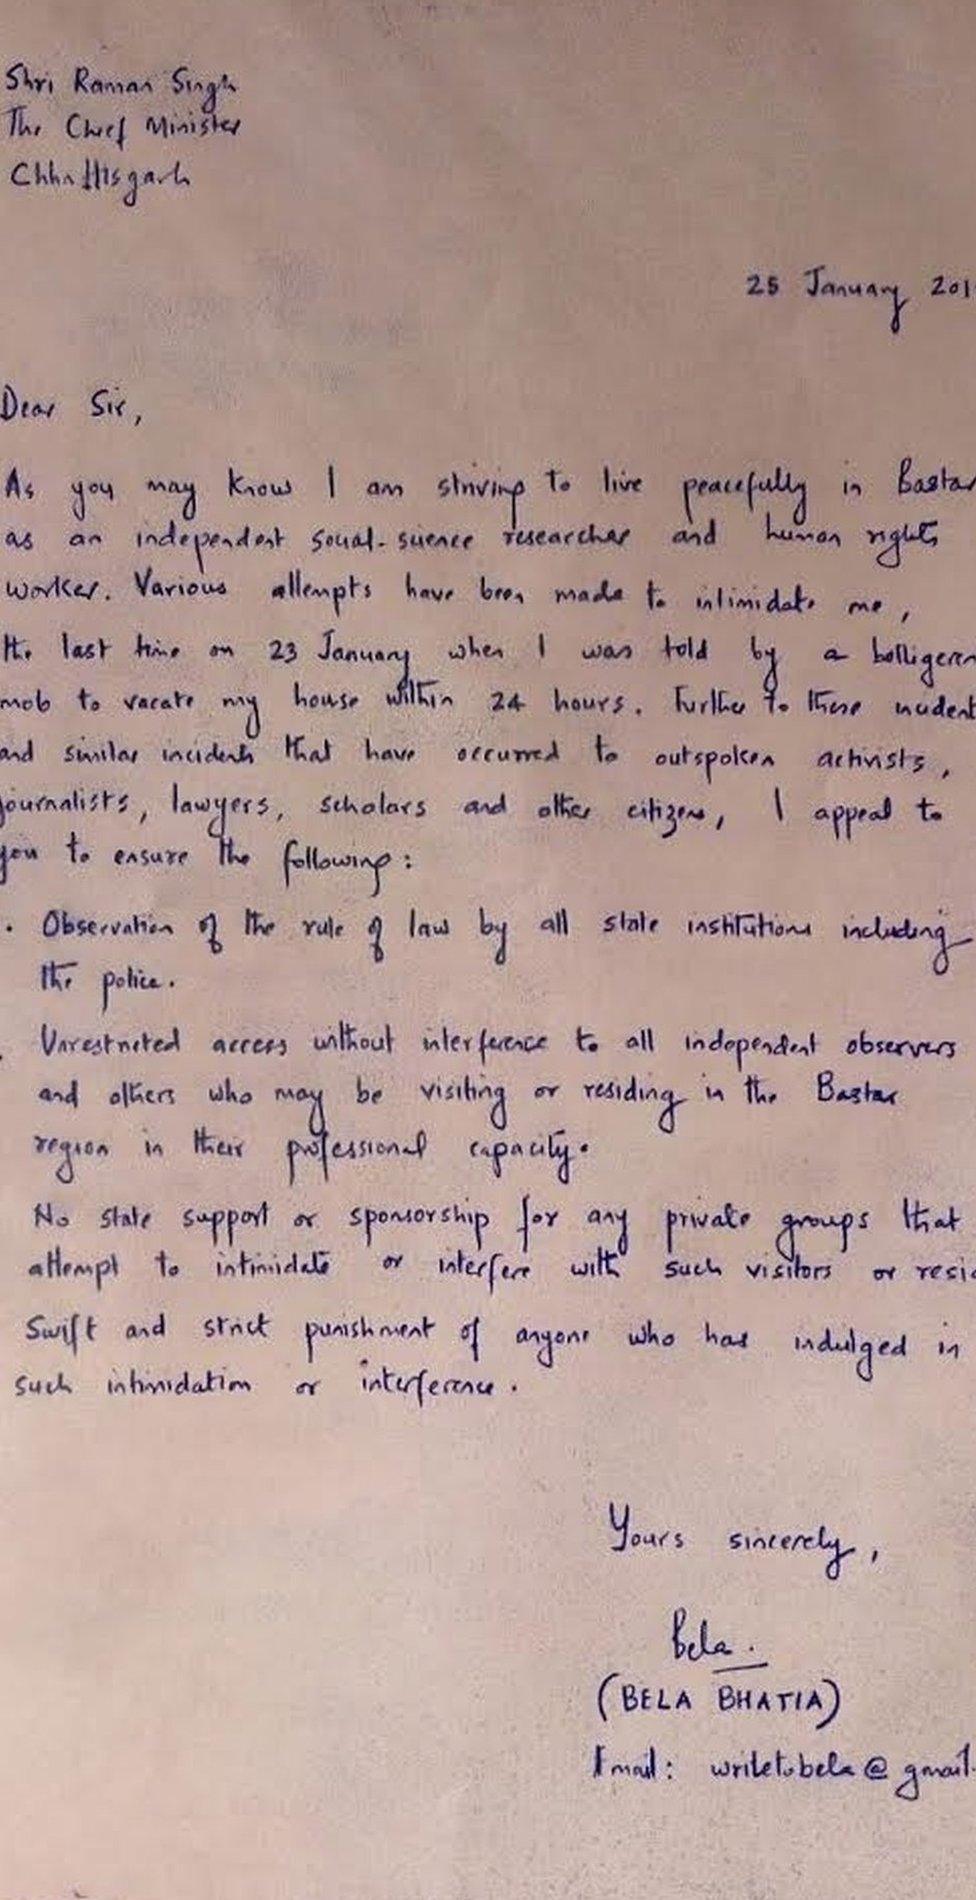 Shri Raman Singh
The Chief Minister
Chhattisgarh
25 January 201
Dear Sir,
As you may know I am striving to live peacefully in Bastar
as an independent social-science researcher and human rights
worker. Various attempts have been made to intimidate me,
the last time on 23 January when I was told by a belligeren
mob to vacate my house within 24 hours. Further to these incident
and similar incidents that have occurred to outspoken activists,
journalists, lawyers, scholars and other citizens, I appeal to
you to ensure the following:
. Observation of the rule of law by all state institutions including
the police.
. Unrestricted access without interference to all independent observers
and others who may be visiting or residing in the Bastar
region in their professional capacity.
No state support or sponsorship for any private groups that
attempt to intimidate or interfere with such visitors or resid
Swift and strict punishment of anyone who has indulged in
such intimidation or interference.
Yours sincerely,
Bela.
(BELA BHATIA)
Email: writetobela@gmail.